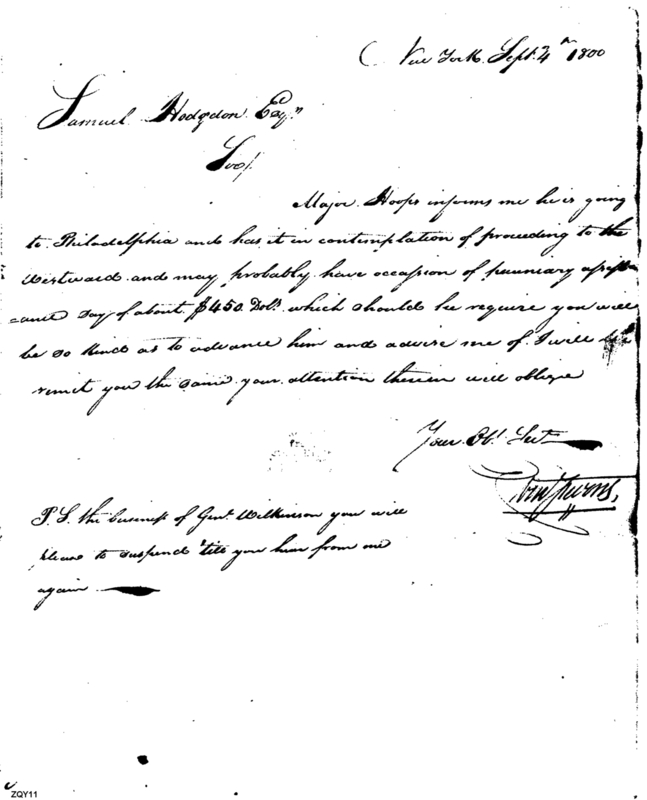 New York Sept. 4th 1800
Samuel Hodgdon Esqr
Sir/
Major Hoops informs me he is going
to Philadelphia and has it in contemplation of proceeding to the
Westward and may probably have occassion of pecuniary assist
=ance Say of about $450 Dols. which should he require you will
be so kind as to advance him and advise me of I will
remit you the same your attention therein will oblige
Your Obt Servt
P.S. the business of Genl. Wilkinson you will
please to suspend 'till you hear from me
again
ZQY11